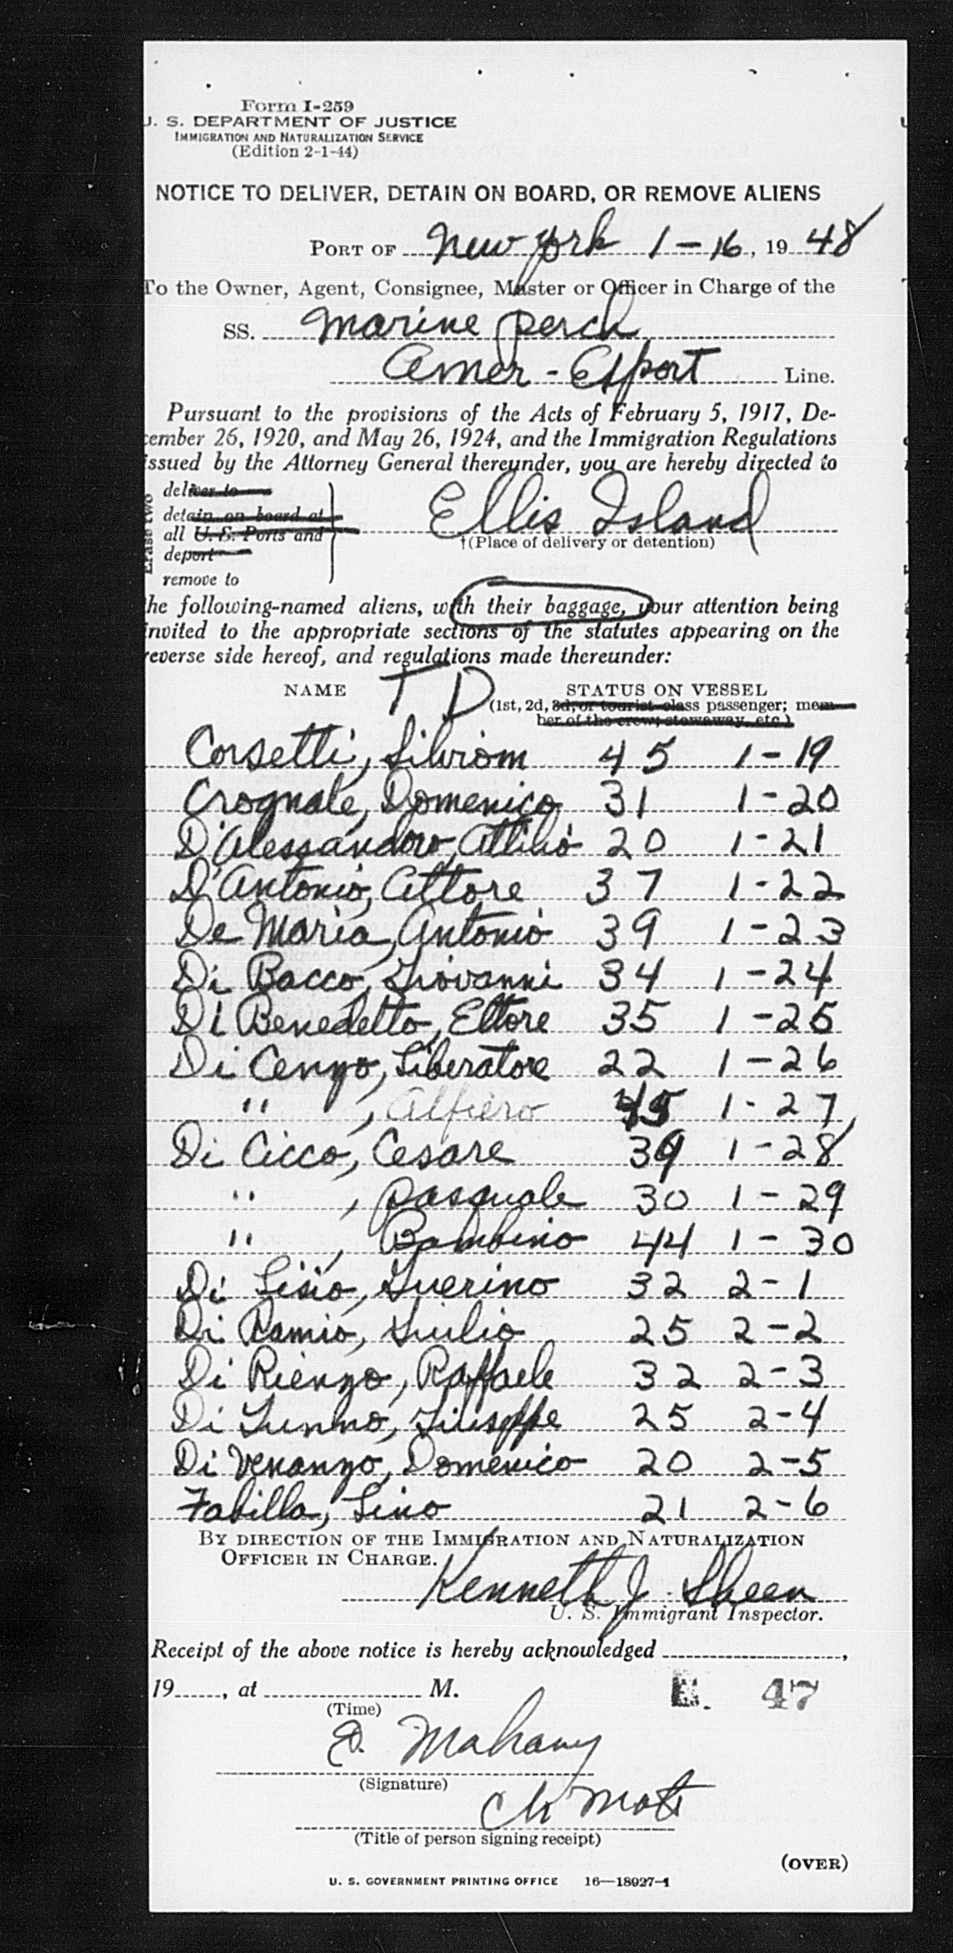 Form I-259
U. S. DEPARTMENT OF JUSTICE
IMMIGRATION AND NATURALIZATION SERVICE
(Edition 2-1-44)
NOTICE TO DELIVER, DETAIN ON BOARD, OR REMOVE ALIENS
PORT OF New York 1-16, 1948
To the Owner, Agent, Consignee, Master or Officer in Charge of the
SS. Marine Perch
Amer-Export Line.
Pursuant to the provisions of the Acts of February 5, 1917, De-
cember 26, 1920, and May 26, 1924, and the Immigration Regulations
issued by the Attorney General thereunder, you are hereby directed to
Erase two
deliver to
detain on board at
all U. S. Ports and
deport
remove to
Ellis Island
†(Place of delivery or detention)
the following-named aliens, with their baggage, your attention being
invited to the appropriate sections of the statutes appearing on the
reverse side hereof, and regulations made thereunder:
NAME T D STATUS ON VESSEL
(1st, 2d, 3d, or tourist class passenger; mem-
ber of the crew; stowaway, etc.)
Corsetti, Silviom 45 1-19
Crognale, Domenico 31 1-20
D'Alessandoro, Attilio 20 1-21
D'Antonio, Attore 37 1-22
De Maria, Antonio 39 1-23
Di Bacco, Giovanni 34 1-24
Di Benedetto, Ettore 35 1-25
Di Cenzo, Liberatore 22 1-26
" , Alfiero 45 1-27
Di Cicco, Cesare 39 1-28
" , Pasquale 30 1-29
" , Bambino 44 1-30
Di Lisio, Guerino 32 2-1
Di Ramio, Giulio 25 2-2
Di Rienzo, Raffaele 32 2-3
Di Tunno, Giuseppe 25 2-4
Di Venanzo, Domenico 20 2-5
Fabilla, Lino 21 2-6
BY DIRECTION OF THE IMMIGRATION AND NATURALIZATION
OFFICER IN CHARGE.
Kenneth J. Sheen
U. S. Immigrant Inspector.
Receipt of the above notice is hereby acknowledged ,
19 , at M.
(Time)
E. 47
E. Mahany
(Signature)
Ch Mate
(Title of person signing receipt)
(OVER)
U. S. GOVERNMENT PRINTING OFFICE 16—18927-1